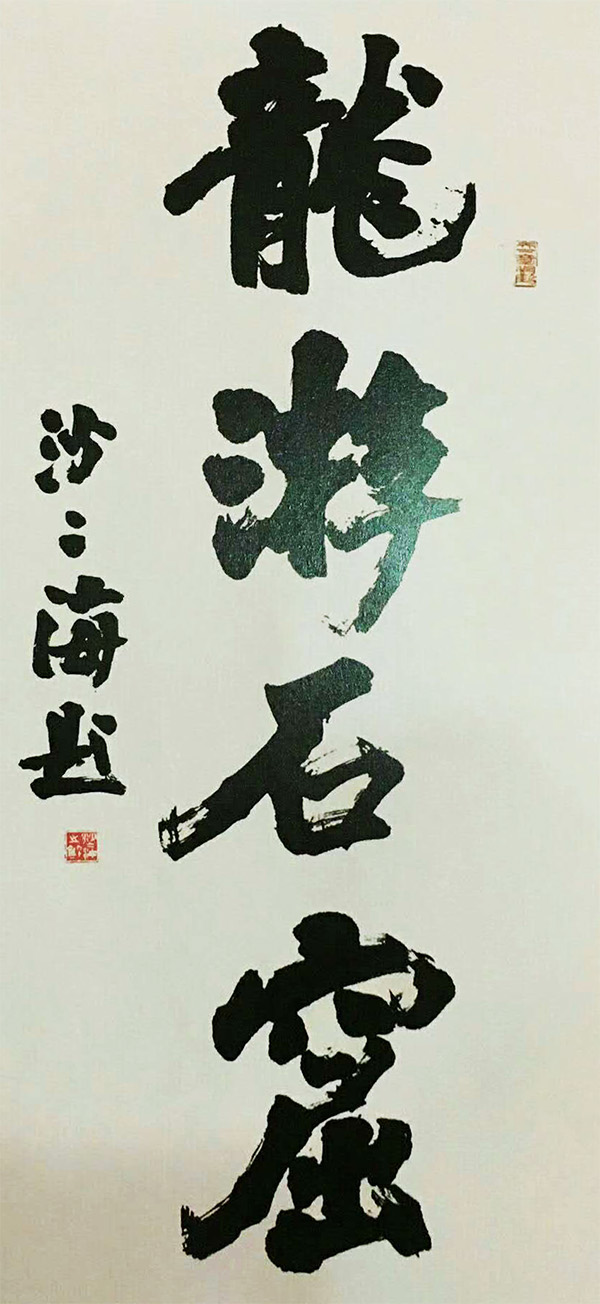 龍游石窟
沙二海书